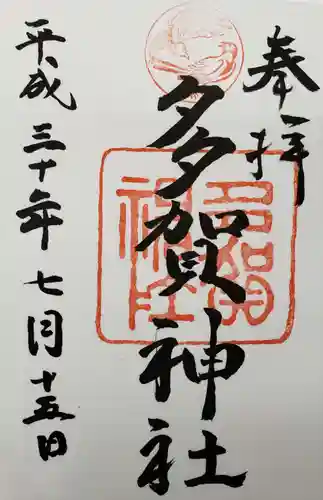 奉拝
多賀神社
平成三十年七月十五日
多賀神社